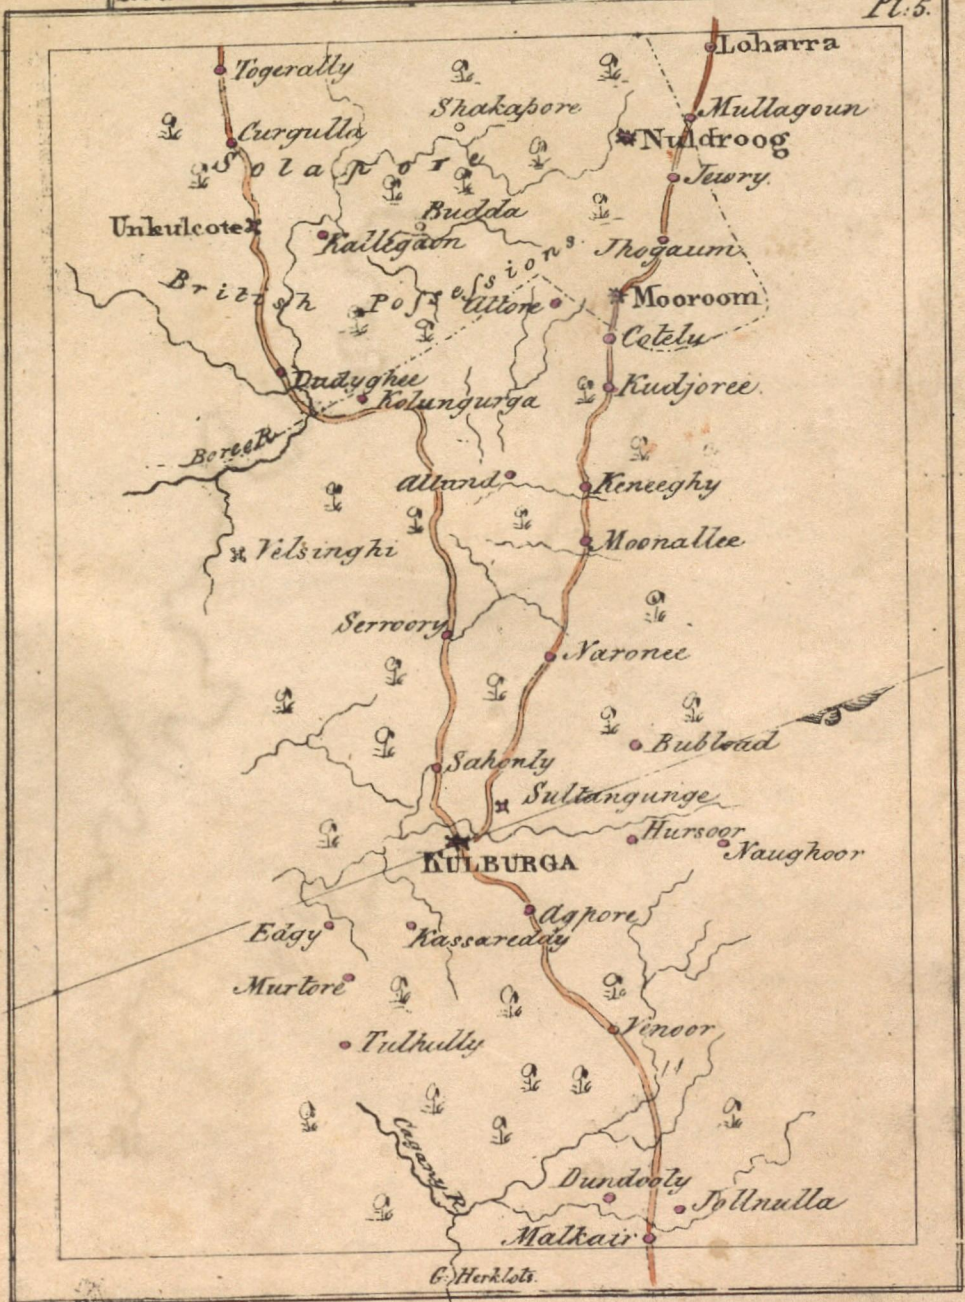 Pl: 5.
Loharra
Togerally
Shakapore
Mullagoun
Curgulla
Nuldroog
Solapore
Jewry.
Budda
Unkulcote
Kallegaon
Jhogaum
British Possessions
Mooroom
Altore
Cotely
Dudyghee
Kudjoree.
Kolungurga
Boree R.
Allund
Keneeghy
Velsinghi
Moonallee
Serroory
Naronee
Bubload
Sahonly
Sultangunge
Hursoor
KULBURGA
Naughoor
Agpore
Edgy
Kassareddy
Murtore
Venoor
Tulhully
Cagany R.
Dundooly
Jollnulla
Malkair
G. Herklots.